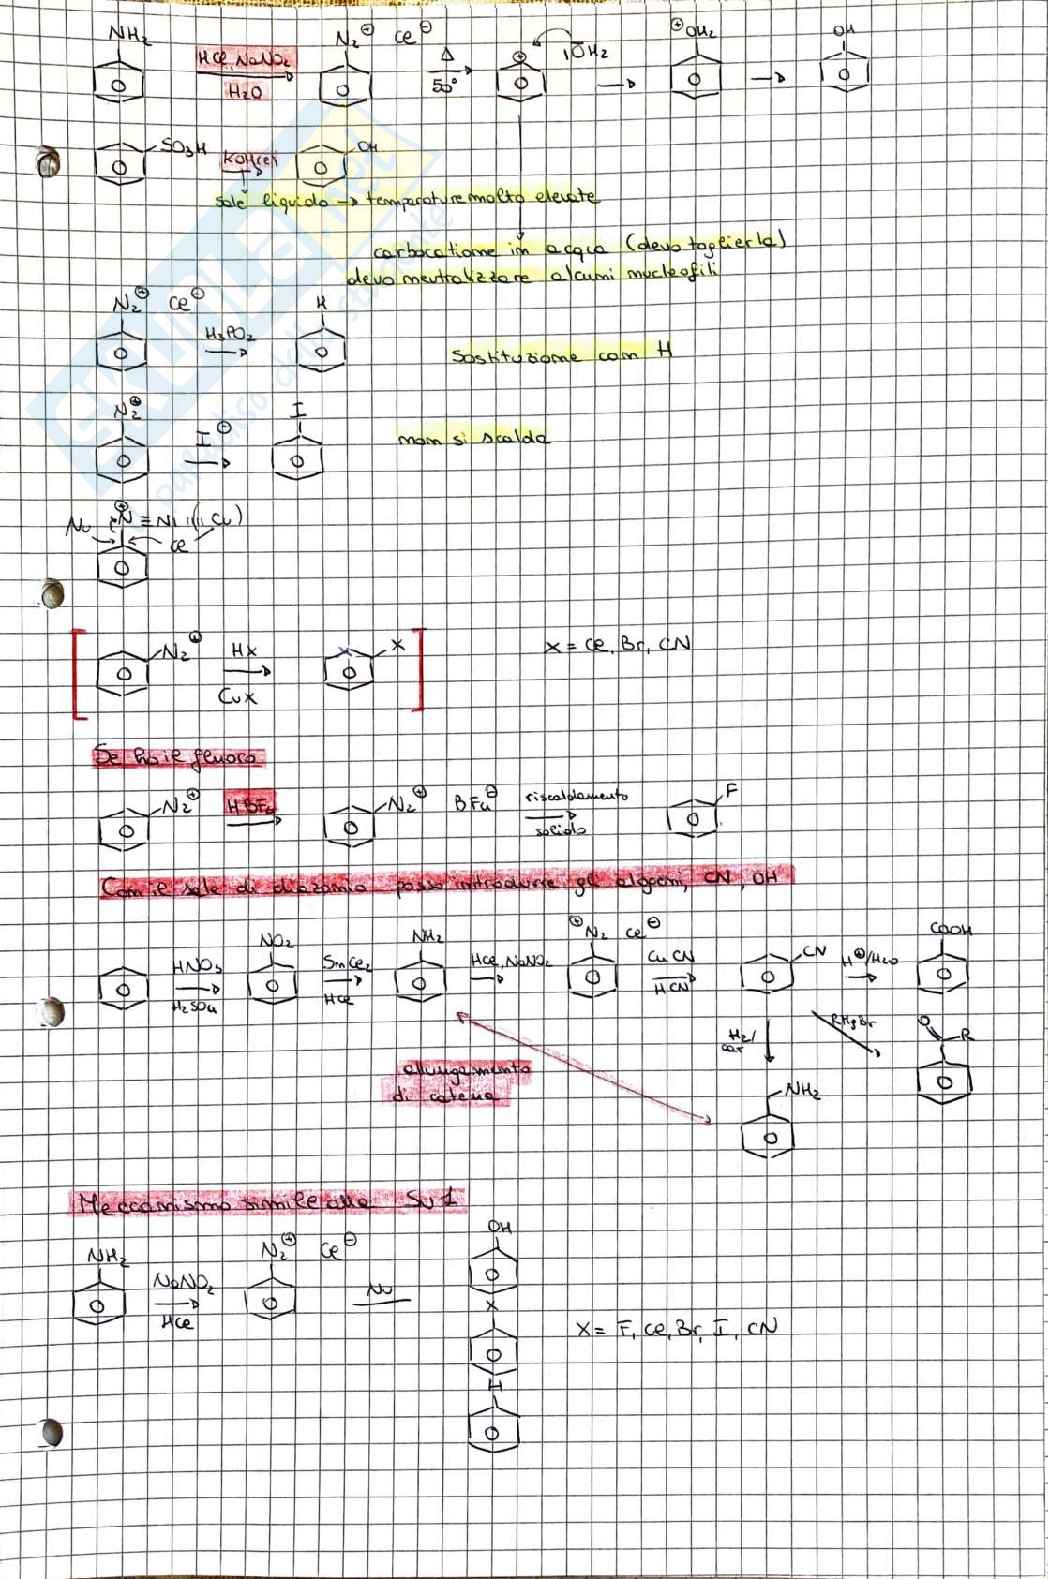 NH₂ HCl, NaNO₂ H₂O N₂⊕ Cl⊖ Δ 50° ⊕ |OH₂ ⊕OH₂ OH
SO₃H KOH(l) OH
sale liquido → temperature molto elevate
carbocatione in acqua (devo toglierla)
devo neutralizzare alcuni nucleofili
N₂⊕ Cl⊖ H₃PO₂ H
Sostituzione con H
N₂⊕ I⊖ I
non si scalda
Nu ⊕N≡N| (Cu)
Cl
N₂⊕ HX CuX X
X = Cl, Br, CN
Se ho il fluoro
N₂⊕ HBF₄ N₂⊕ BF₄⊖ riscaldamento solido F
Con il sale di diazonio posso introdurre gli alogeni, CN, OH
HNO₃ H₂SO₄ NO₂ SnCl₂ HCl NH₂ HCl, NaNO₂ ⊕N₂ Cl⊖ CuCN HCN CN H⊕/H₂O COOH
H₂/cat RMgBr O R
allungamento
di catena
NH₂
Meccanismo simile alla SN1
NH₂ NaNO₂ HCl N₂⊕ Cl⊖ Nu OH
X
X = F, Cl, Br, I, CN
H